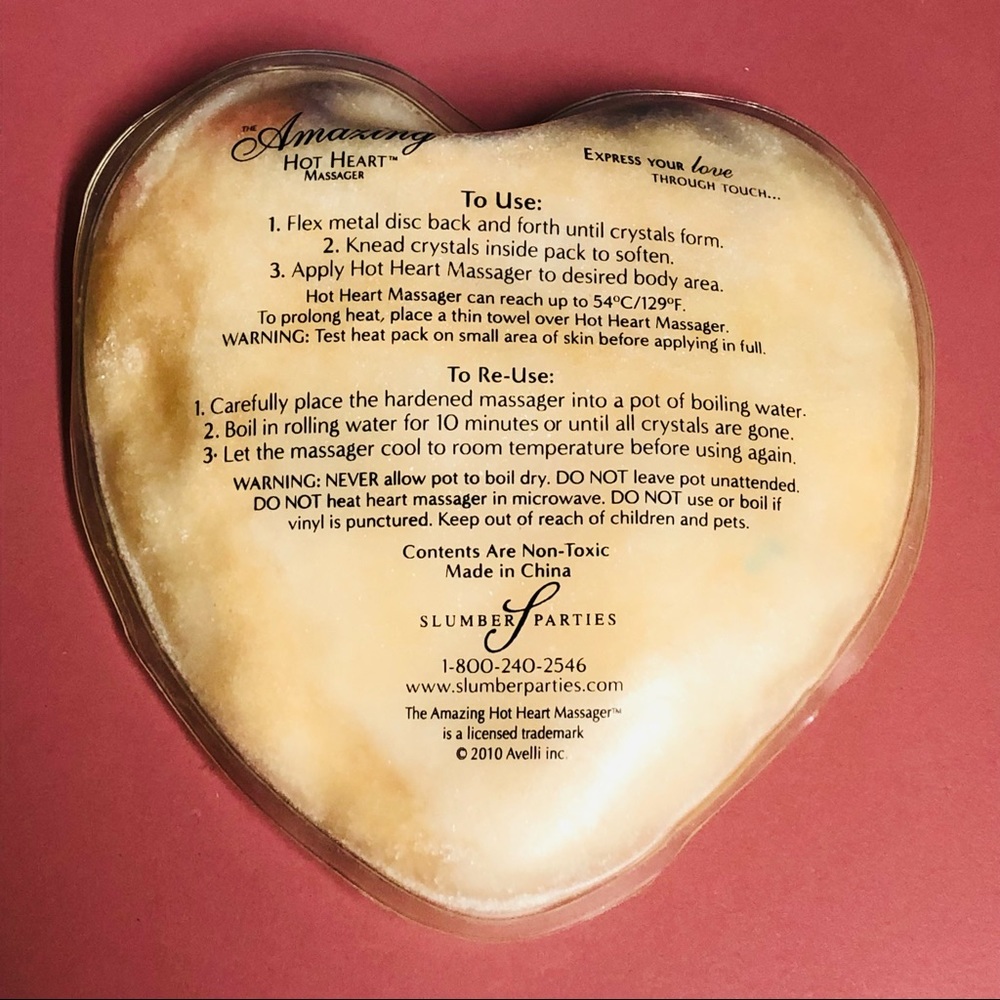 THE Amazing
HOT HEART™
MASSAGER
EXPRESS YOUR love
THROUGH TOUCH...
To Use:
1. Flex metal disc back and forth until crystals form.
2. Knead crystals inside pack to soften.
3. Apply Hot Heart Massager to desired body area.
Hot Heart Massager can reach up to 54ºC/129ºF.
To prolong heat, place a thin towel over Hot Heart Massager.
WARNING: Test heat pack on small area of skin before applying in full.
To Re-Use:
1. Carefully place the hardened massager into a pot of boiling water.
2. Boil in rolling water for 10 minutes or until all crystals are gone.
3. Let the massager cool to room temperature before using again.
WARNING: NEVER allow pot to boil dry. DO NOT leave pot unattended.
DO NOT heat heart massager in microwave. DO NOT use or boil if
vinyl is punctured. Keep out of reach of children and pets.
Contents Are Non-Toxic
Made in China
SLUMBER PARTIES
1-800-240-2546
www.slumberparties.com
The Amazing Hot Heart Massager™
is a licensed trademark
© 2010 Avelli inc.